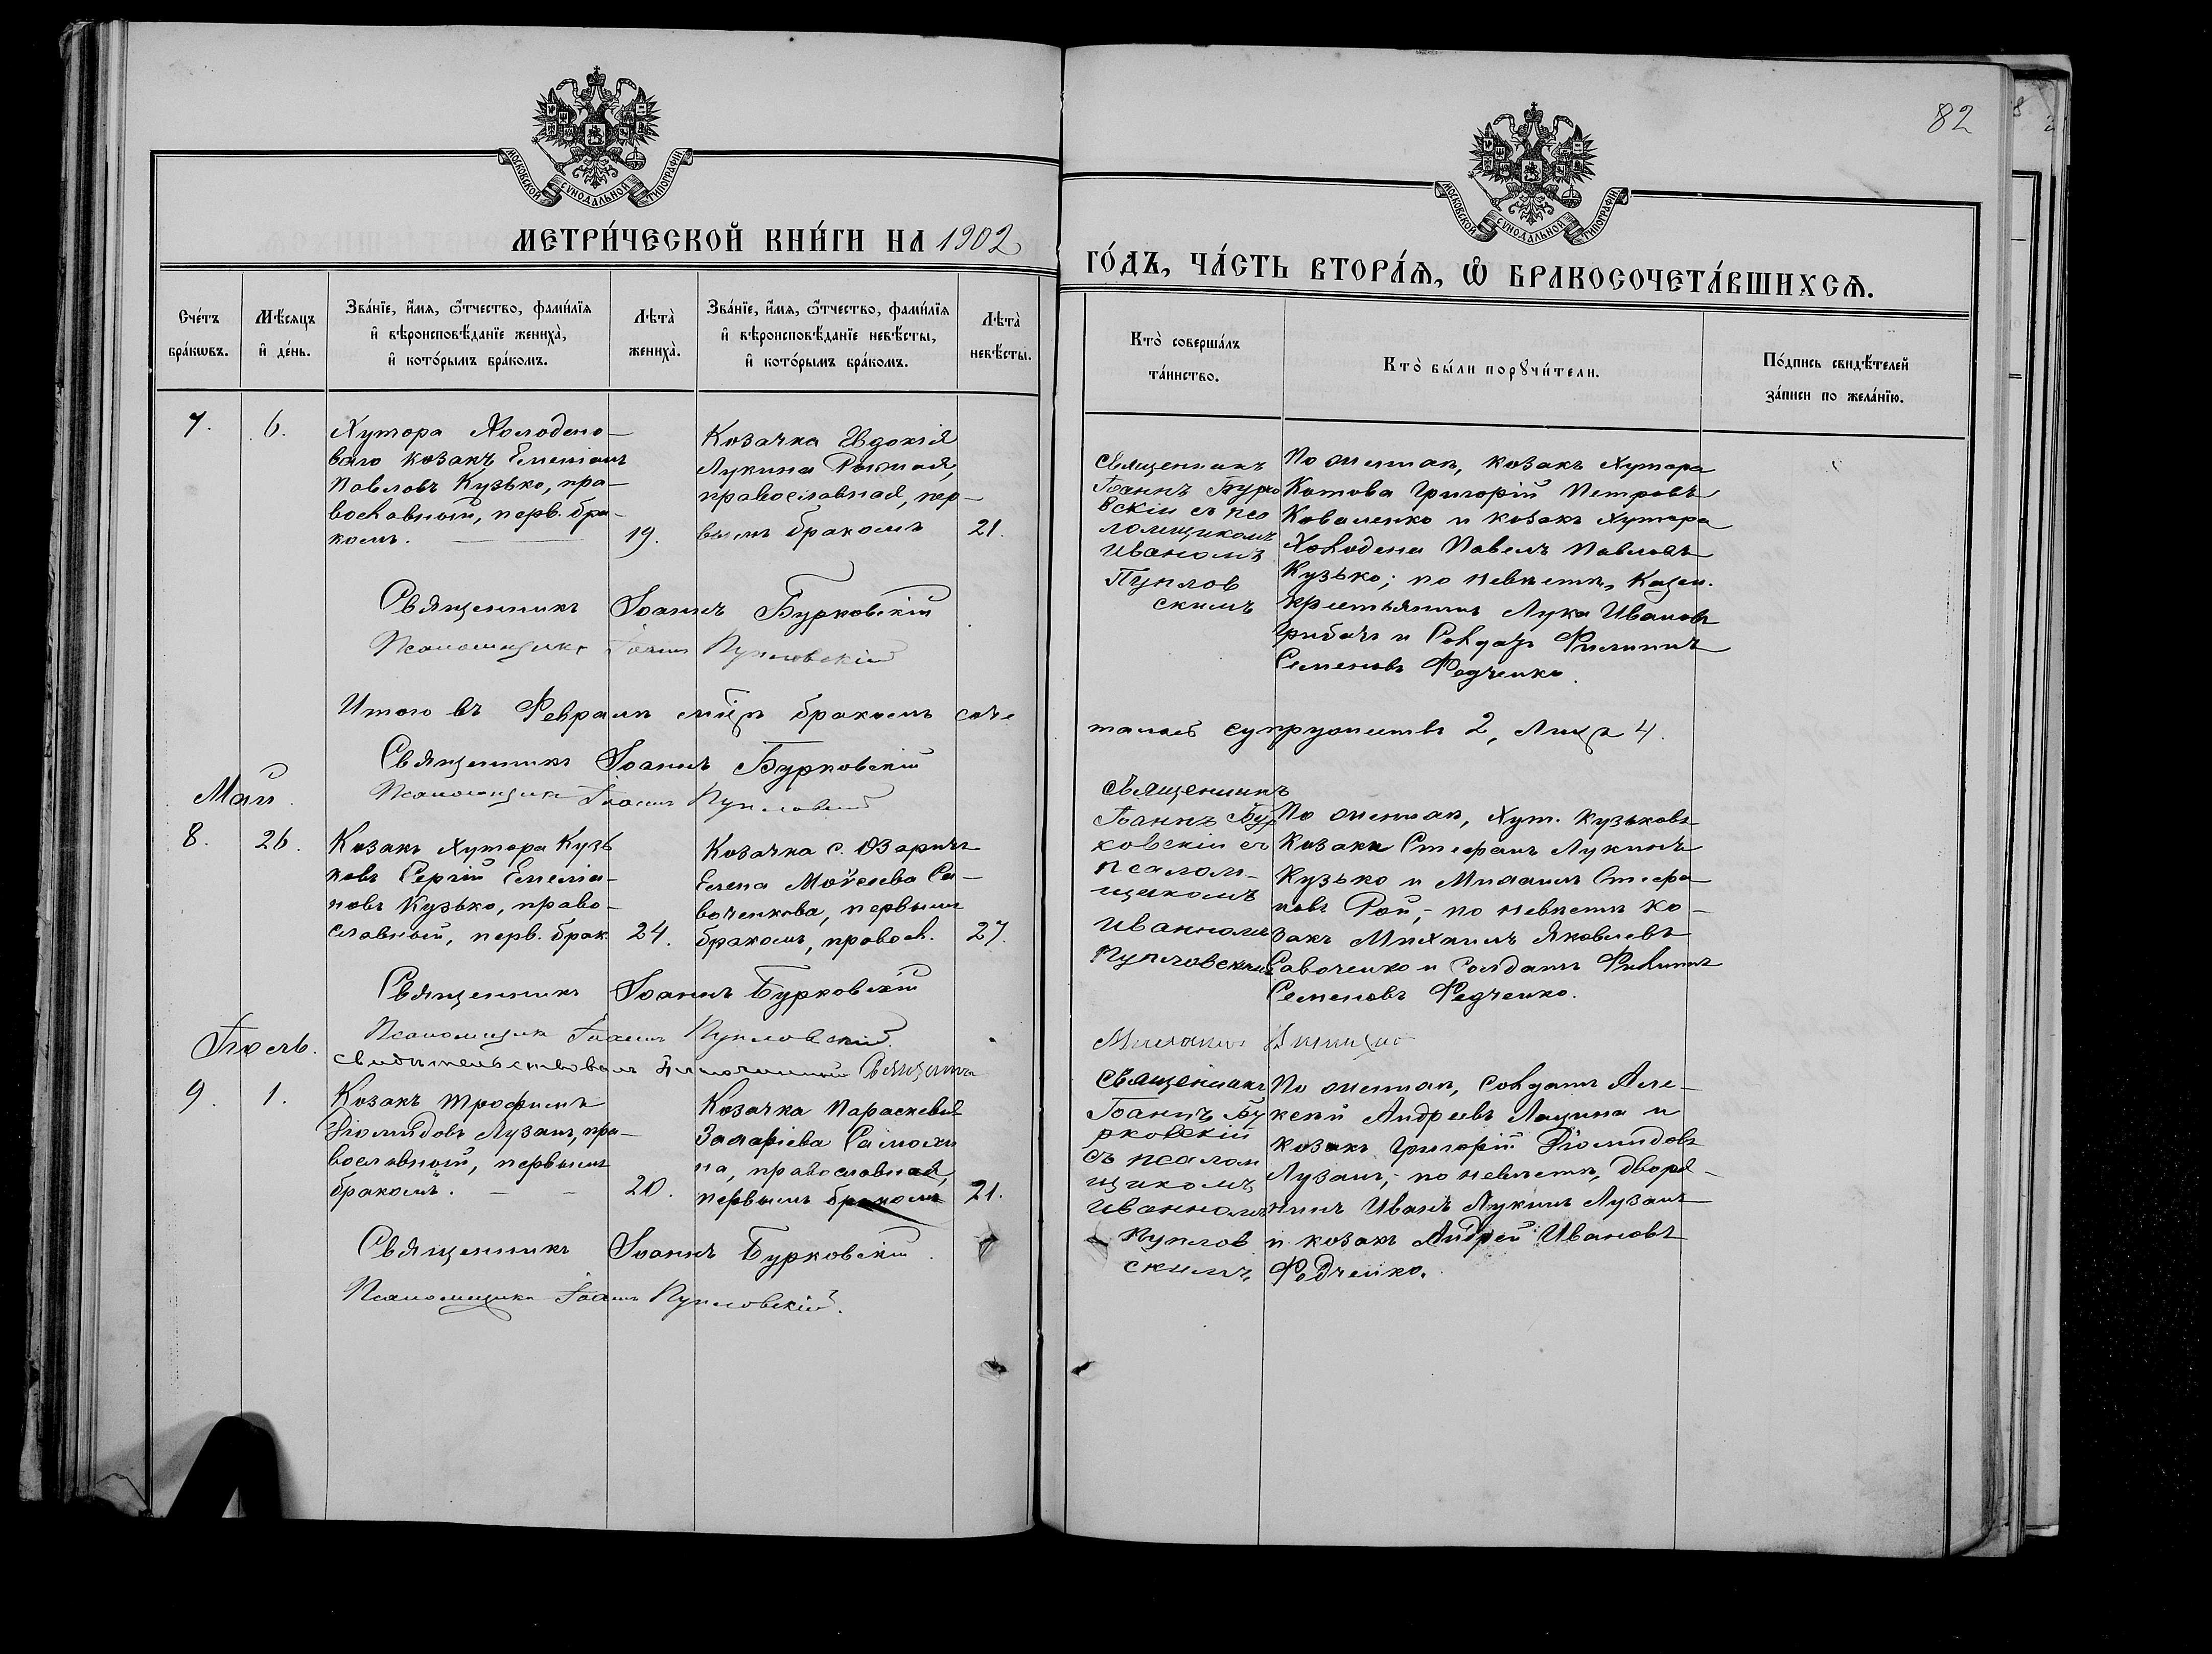 82
МОСКОВСКОЙ СѴНОДАЛЬНОЙ ТИПОГРАФІИ
МОСКОВСКОЙ СѴНОДАЛЬНОЙ ТИПОГРАФІИ
МЕТРИ́ЧЕСКОЙ КНИ́ГИ НА 1902
ГО́ДЪ, ЧА́СТЬ ВТОРА́Ѧ, Ѡ҆ БРАКОСОЧЕТА́ВШИХСѦ.
Сче́тъ бра́кѡвъ.
Мѣ́сѧцъ и҆ де́нь.
Зва́нїе, и҆́мѧ, ѻ҆́тчество, фами́лїѧ и҆ вѣроисповѣ́данїе жениха̀, и҆ кото́рымъ бра́комъ.
Лѣта̀ жениха̀.
Зва́нїе, и҆́мѧ, ѻ҆́тчество, фами́лїѧ и҆ вѣроисповѣ́данїе невѣ́сты, и҆ кото́рымъ бра́комъ.
Лѣта̀ невѣ́сты.
Кто̀ соверша́лъ та́инство.
Кто̀ бы́ли порꙋчи́тели.
По́дпись свидѣ́телей за́писи по жела́нїю.
7.
6.
Хутора Холодно-
ваго козакъ Емеліанъ
Павловъ Кузько, пра-
вославный, перв. бра-
комъ.
19.
Козачка Евдокія
Лукина
православная, пер-
вымъ бракомъ
21.
Священникъ
Іоаннъ Бурко
вскій съ пса
ломщикомъ
Иваномъ
Пуклов
скимъ
По женихѣ, козакъ Хутора
Котова Григорій Петровъ
Коваленко и козакъ Хутора
Холодена Павелъ Павловъ
Кузько; по невѣстѣ, Казен.
крестьянинъ Лука Ивановъ
Грибачъ и Солдатъ Филиппъ
Семеновъ Федченко.
Священникъ Іоаннъ Бурковскій
Псаломщикъ Іоаннъ Пукловскій
Итого въ Февралѣ м‑цѣ бракомъ соче
талось супружествъ 2, Лицъ 4.
Священникъ Іоаннъ Бурковскій
Псаломщикъ Іоаннъ Пукловскій
Май.
8.
26.
Козакъ Хутора Кузь
ковъ Сергій Емеліа-
новъ Кузько, право-
славный, перв. брак.
24.
Козачка с. Юзаричъ
Елена Моѵсеева Са-
воченкова, первымъ
бракомъ, правосл.
27.
Священникъ
Іоаннъ Бур
ковскій съ
псалом-
щикомъ
Иваномъ
Пукловскимъ
По женихѣ, Хут. Кузьковъ
Козаки Стефанъ Лукинъ
Кузько и Михаилъ Стефа
новъ Рой; по невѣстѣ ко-
закъ Михаилъ Яковлевъ
Савоченко и Солдатъ Филиппъ
Семеновъ Федченко.
Священникъ Іоаннъ Бурковскій
Псаломщикъ Іоаннъ Пукловскій.
Свидѣтельствовалъ Благочинный Священникъ
Іюль.
9.
1.
Козакъ Трофимъ
Діомидовъ Лузанъ, пра-
вославный, первымъ
бракомъ.
20.
Козачка Параскева
Захаріева Самохи
на, православная,
первымъ бракомъ
21.
Священникъ
Іоаннъ Бу
рковскій
съ псалом
щикомъ
Иваномъ
Пуклов
скимъ
По женихѣ, Солдатъ Але-
ксѣй Андреевъ Лацина и
козакъ Григорій Діомидовъ
Лузанъ; по невѣстѣ, Дворя-
нинъ Иванъ Лукинъ Лузанъ
и козакъ Андрей Ивановъ
Федченко.
Священникъ Іоаннъ Бурковскій.
Псаломщикъ Іоаннъ Пукловскій.